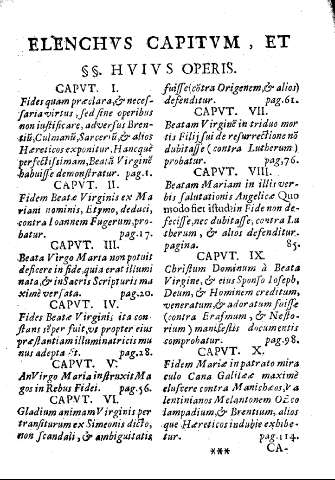 ELENCHVS CAPITVM, ET
§§. HVIVS OPERIS.
CAPVT. I.
Fides quam præclara, & neces-
saria virtus, sed sine operibus
non iustificare, adversus Bren-
tiũ, Culmanũ, Sarceriũ, & alios
Hæreticos exponitur. Hancque
perfectissimam, Beatã Virginẽ
habuisse demonstratur. pag.1.
CAPVT. II.
Fidem Beatæ Virginis ex Ma
riani nominis, Etymo, deduci,
contra Ioannem Fugerum, pro-
batur. pag.17.
CAPVT. III.
Beata Virgo Maria non potuit
deficere in fide, quia erat illumi
nata, & in Sacris Scripturis ma
ximè versata. pag.20.
CAPVT. IV.
Fides Beatæ Virginis ita con-
stans sẽper fuit, vt propter eius
præstantiam illuminatricis mu
nus adepta sit. pag.28.
CAPVT. V.
An Virgo Maria instruxit Ma
gos in Rebus Fidei. pag.56.
CAPVT. VI.
Gladium animam Virginis per
transiturum ex Simeonis dicto,
non scandali, & ambiguitatis
fuisse (cõtra Origenem, & alios)
defenditur. pag.61.
CAPVT. VII.
Beatam Virginẽ in triduo mor
tis Filij sui de resurrectione nõ
dubitasse (contra Lutherum)
probatur. pag,76.
CAPVT. VIII.
Beatam Mariam in illis ver-
bis salutationis Angelicæ Quo
modo fiet istud in Fide non de-
fecisse, nec dubitasse, contra Lu
therum, & alios defenditur.
pagina. 85.
CAPVT. IX.
Christum Dominum à Beata
Virgine, & eius Sponso Ioseph,
Deum, & Hominem creditum,
veneratum, & adoratum fuisse
(contra Erasmum, & Nesto-
rium) manifestis documentis
comprobatur. pag.98.
CAPVT. X.
Fidem Mariæ in patrato mira
culo Cana Galileæ maximè
eluscere contra Manichæos, Va
lentinianos Melantonem Oeco
lampadium, & Brentium, alios
que Hæreticos indubiè exhibe-
tur. pag.114.
*** CA-